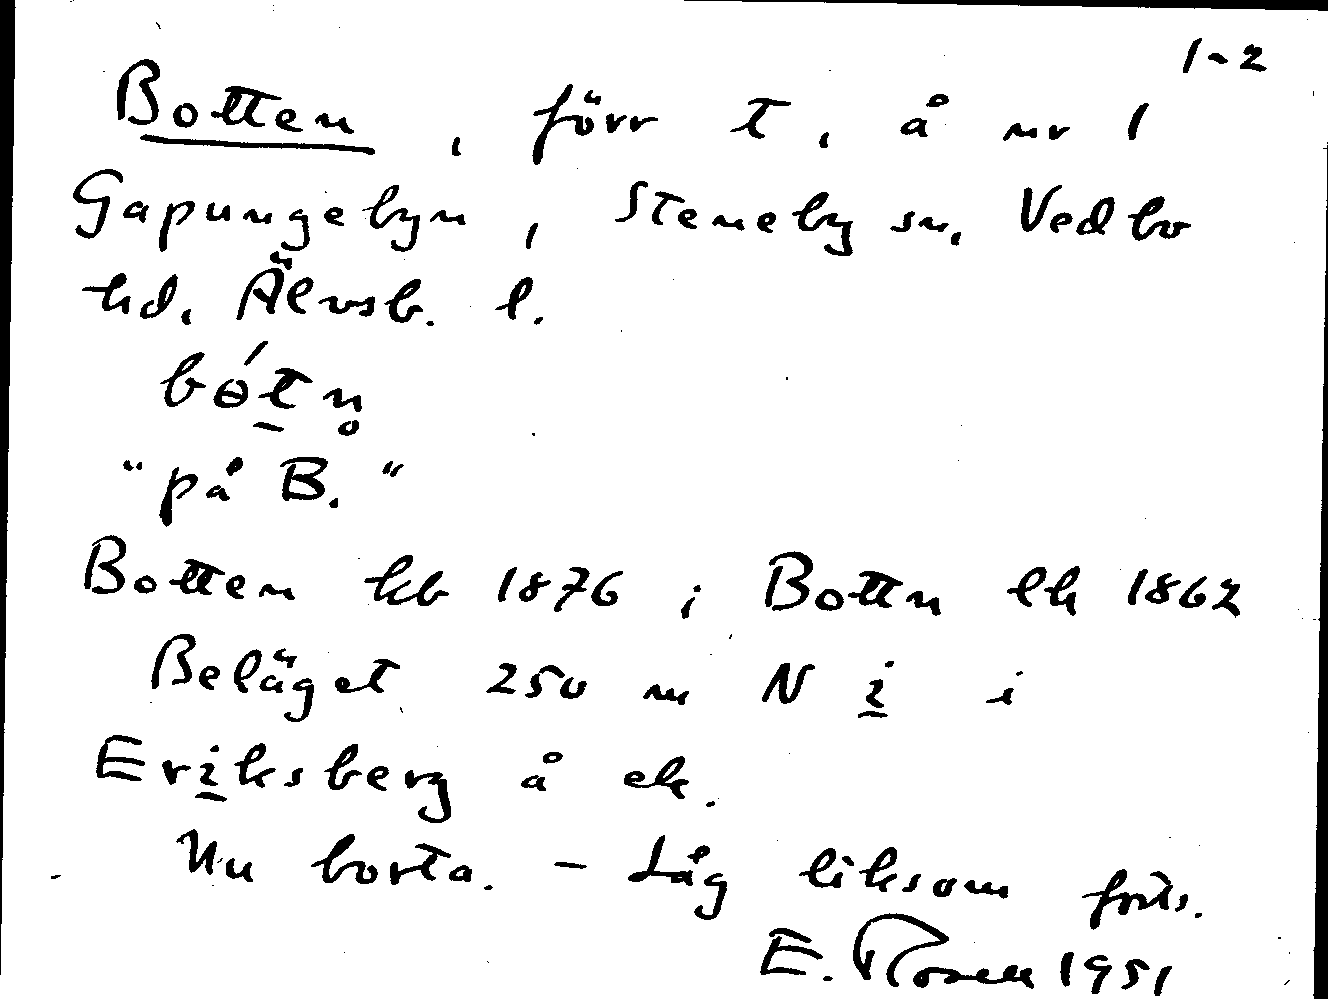 1-2
Botten, förr t. å nr 1
Gapungebyn, Steneby sn. Vedbo
hd. Älvsb. l.
bɵ́tn̥
"på B."
Botten kb 1876; Bottn lh 1862
Beläget 250 m N i i
Eriksberg å ek.
Nu borta. - Låg liksom forts.
E. Rosell 1951